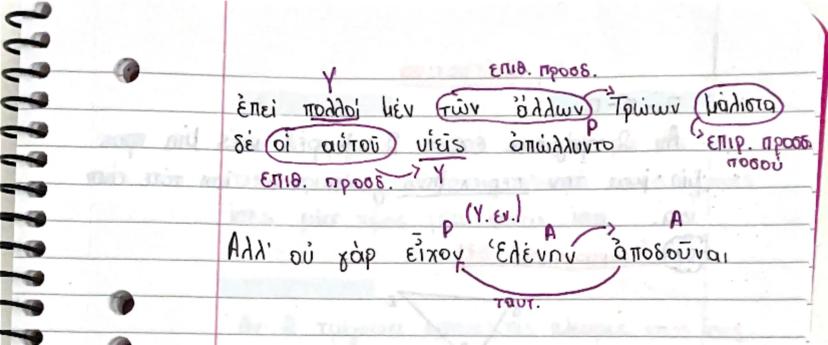 Υ επιθ. προσδ.
ἐπεὶ πολλοὶ μέν τῶν ἄλλων Τρώων μάλιστα
Ρ
δὲ οἱ αὐτοῦ υἱεῖς ἀπώλλυντο επιρ. προσδ.
ποσού
επιθ. προσδ. Υ
(Υ. εν.)
Ρ Α Α
Ἀλλ' οὐ γὰρ εἶχον Ἑλένην ἀποδοῦναι
ταυτ.